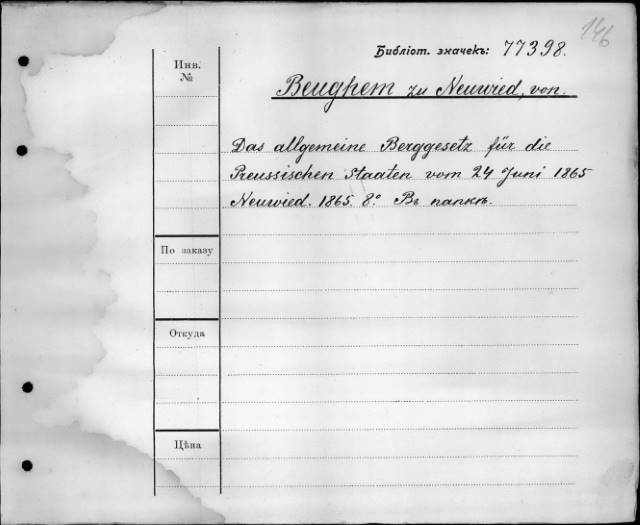 146
Библіот. значекъ: 77398.
Инв.
№
Beughem zu Neuwied, von.
Das allgemeine Berggesetz für die
Preussischen Staaten vom 24 Juni 1865
Neuwied. 1865. 8° Въ папкѣ.
По заказу
Откуда
Цѣна